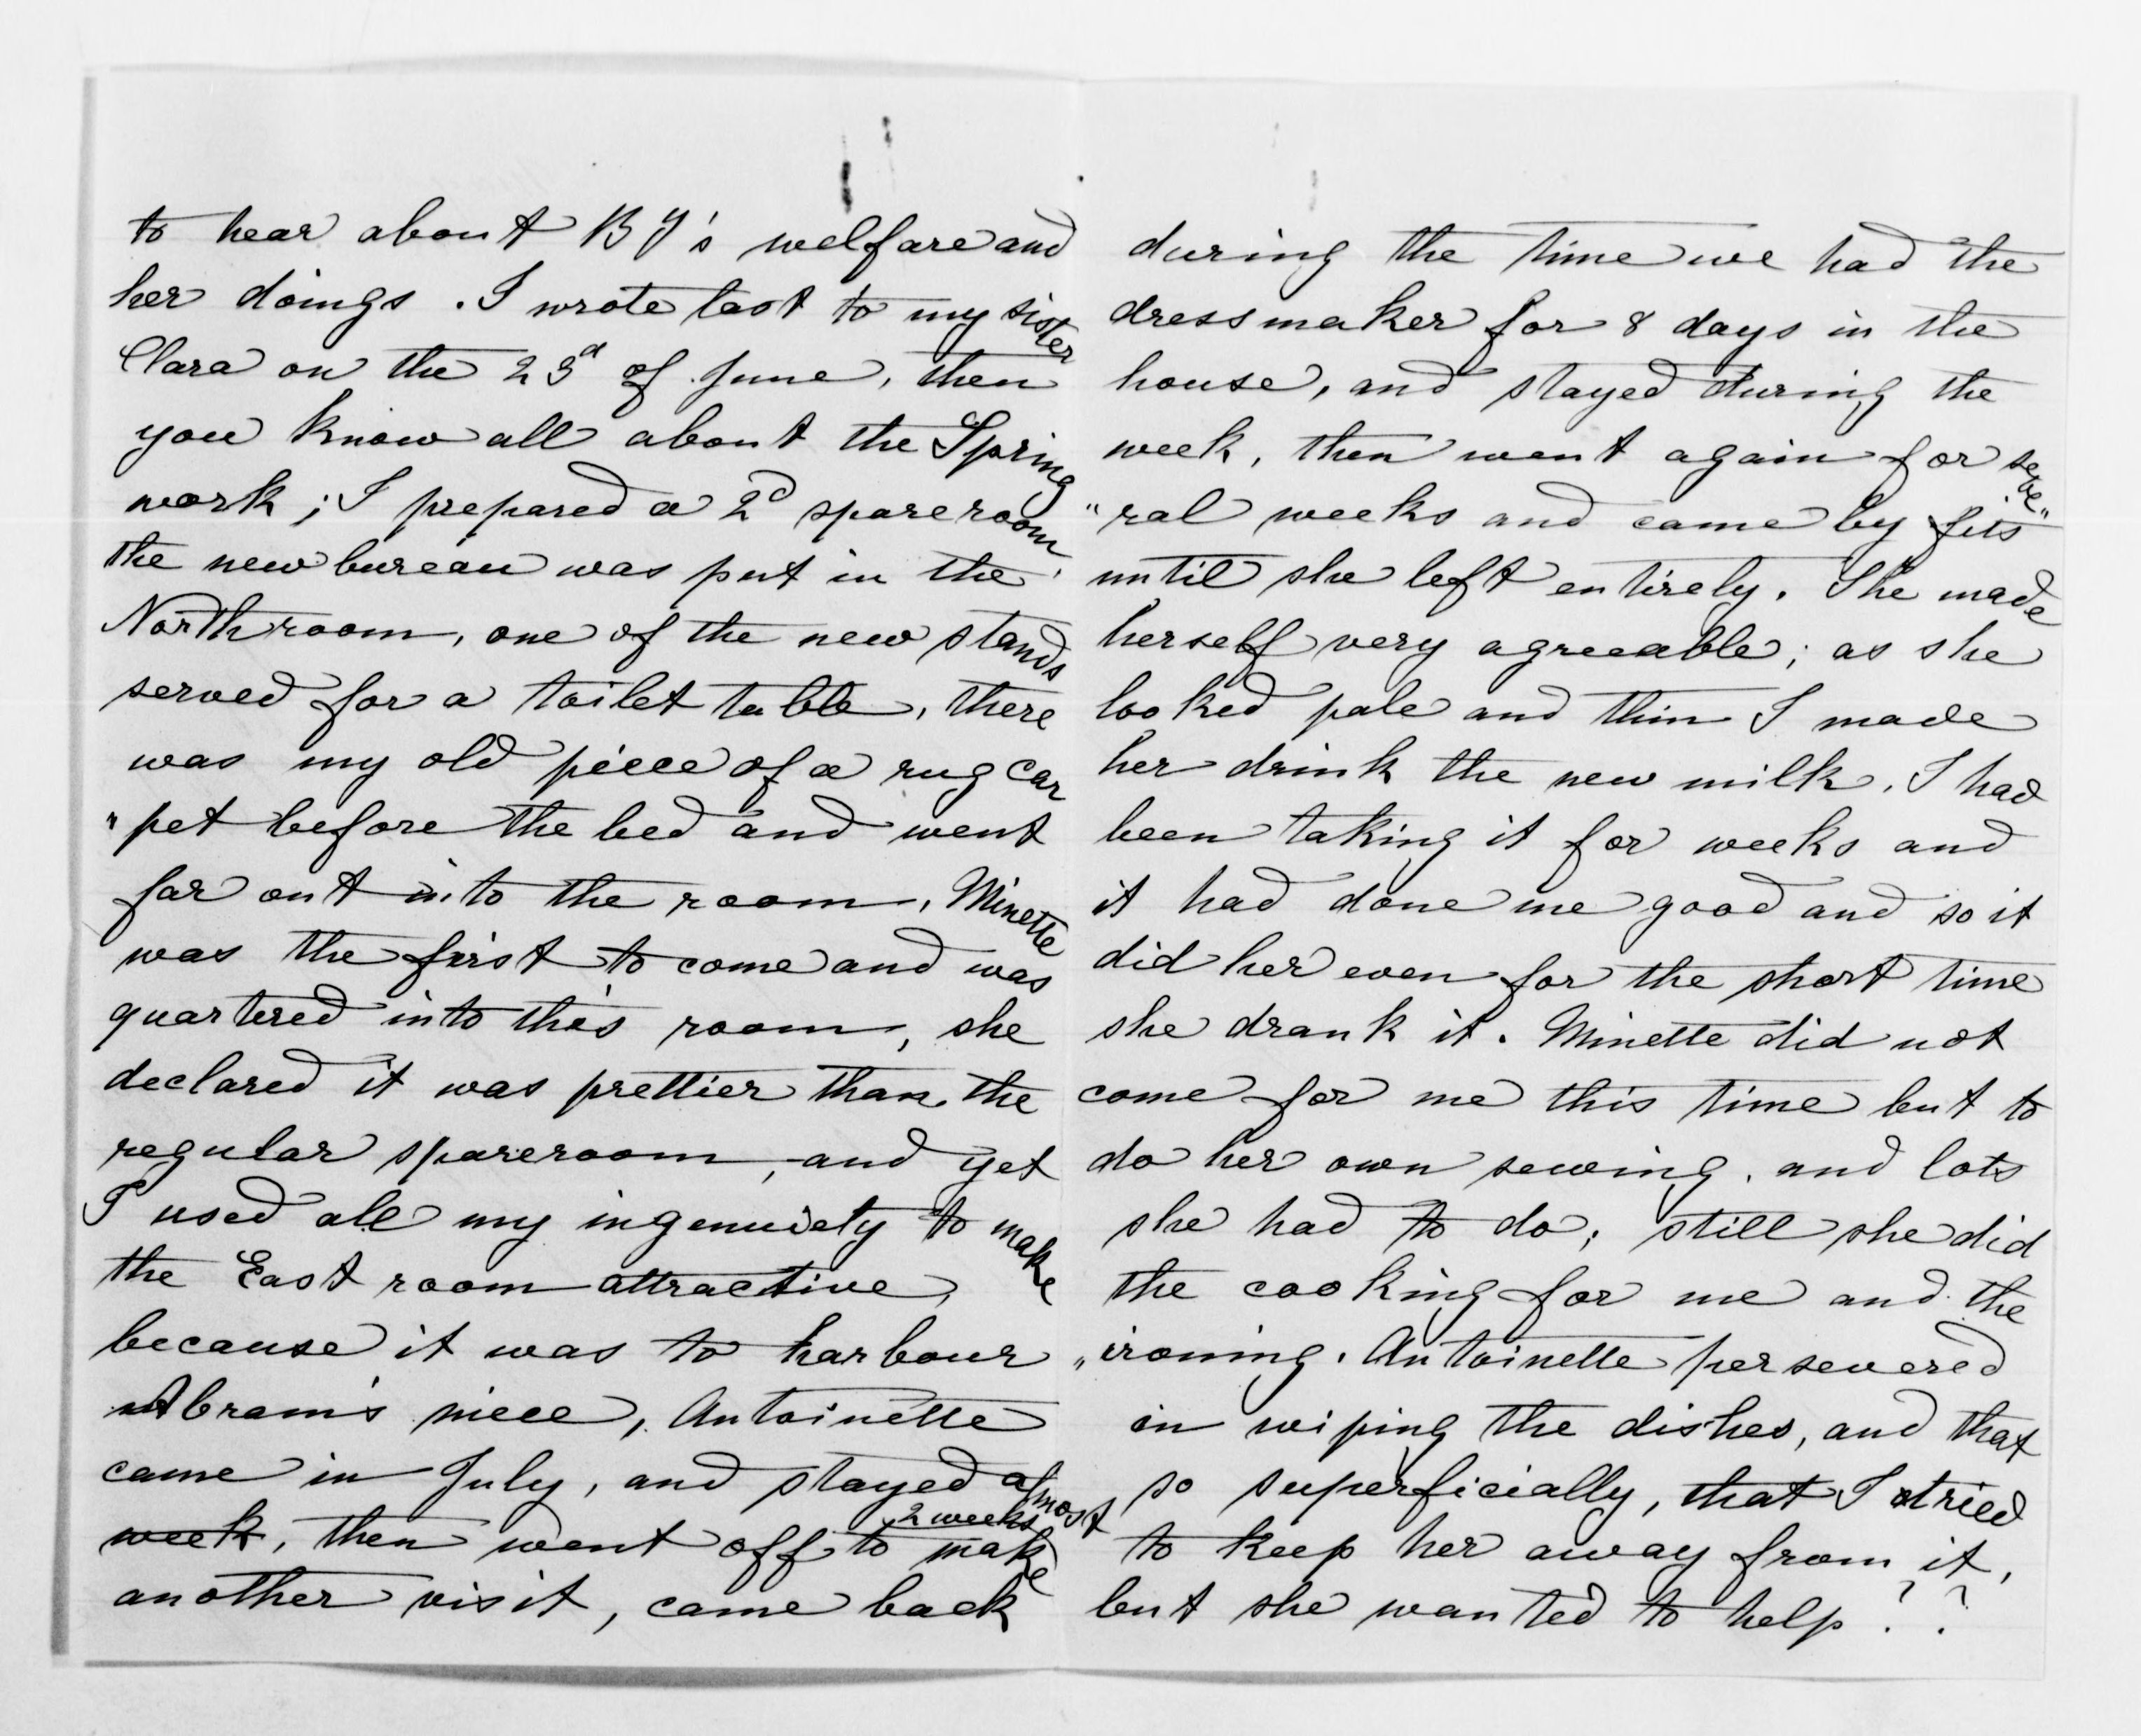 to hear about B J's welfare and
her doings. I wrote last to my sister
Clara on the 23d of June, then
you know all about the Spring
work; I prepared a 2d spareroom,
the new bureau was put in the
North room, one of the new stands
served for a toilet table, there
was my old piece of a rug car
"pet before the bed and went
far out into the room, Minette
was the first to come and was
quartered into this room, she
declared it was prettier than the
regular spareroom, and yet
I used all my ingenuiety to make
the East room attractive,
because it was to harbour
Abram's niece, Antoinette
came in July, and stayed almost
2 weeks
week, then went off to make
another visit, came back
during the time we had the
dressmaker for 8 days in the
house, and stayed during the
week, then went again for seve"
"ral weeks and came by fits
until she left entirely. She made
herself very agreeable; as she
looked pale and thin I made
her drink the new milk. I had
been taking it for weeks and
it had done me good and so it
did her even for the short time
she drank it. Minette did not
come for me this time but to
do her own sewing, and lots
she had to do; still she did
the cooking for me and the
"ironing. Antoinette persevered
in wiping the dishes, and that
so superficially, that I tried
to keep her away from it,
but she wanted to help??